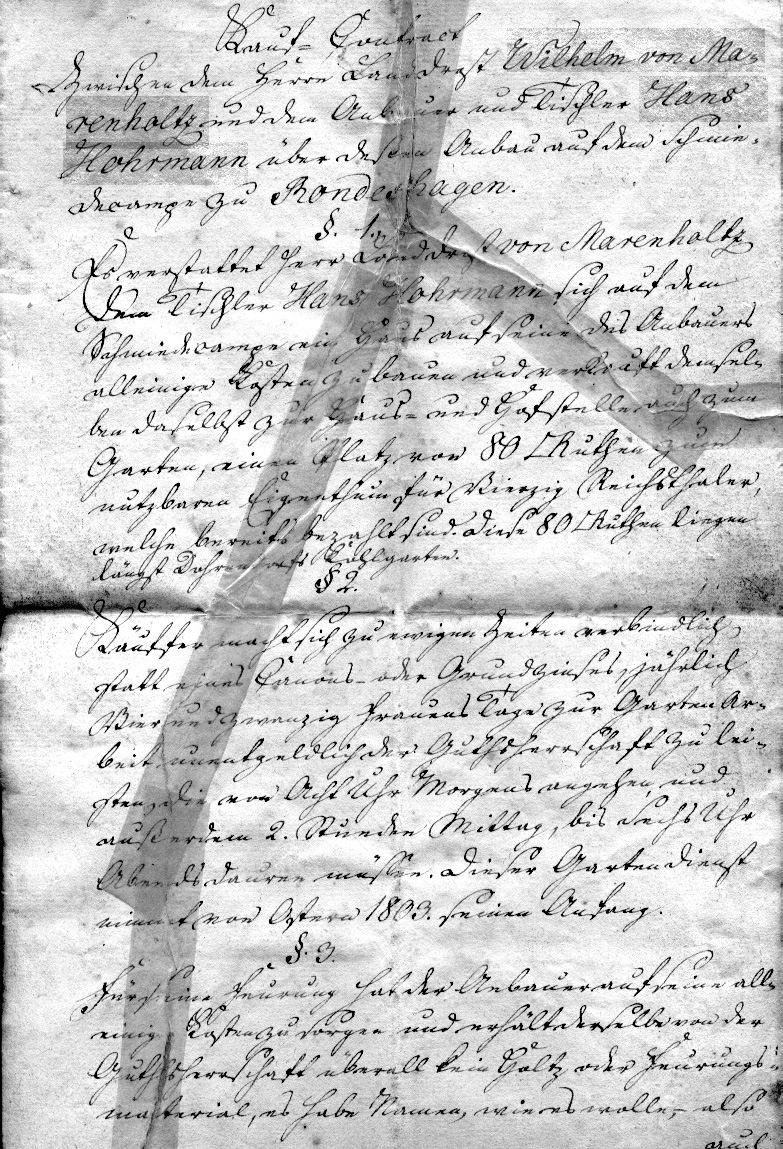 Kauf-Contract
Zwischen dem Herrn Landdrost Wilhelm von Ma-
renholtz und dem Anbauer und Tischler Hans
Hohrmann über dessen Anbau auf dem Schmie-
decampe zu Rondeshagen.
§. 1.
Es verstattet Herr Landdrost von Marenholtz
dem Tischler Hans Hohrmann sich auf dem
Schmiedecampe ein Haus auf seine des Anbauers
alleinige Kosten zu bauen und verkauft demsel-
ben daselbst zur Haus- und Hofstelle auch zum
Garten, einen Platz von 80 □Ruthen zum
nutzbaren Eigenthum für Vierzig Reichsthaler,
welche bereits bezahlt sind. Diese 80 □Ruthen liegen
längst Dohrendorfs Kohlgarten.
§ 2.
Käuffer macht sich zu ewigen Zeiten verbindlich,
statt eines Canons- oder Grundzinses, jährlich
Vier und zwanzig Frauens Tage zur Garten Ar-
beit unentgeldlich der Guthsherrschaft zu lei-
sten, die von Acht Uhr Morgens angehen, und
außerdem 2. Stunden Mittag, bis Sechs Uhr
Abends dauren müssen. Dieser Gartendienst
nimmt von Ostern 1803. seinen Anfang.
§. 3.
Für seine Feurung hat der Anbauer auf seine all-
einige Kosten zu sorgen und erhält derselbe von der
Guthsherrschaft überall kein Holtz oder Feurungs-
material, es habe Namen, wie es wolle,- also
auch